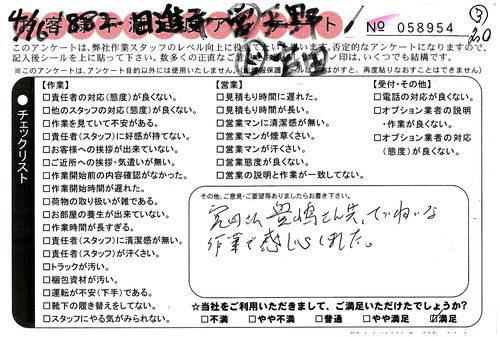 4/26
客様不満足度アンケート
No 058954
③
20
このアンケートは、弊社作業スタッフのレベル向上に役
否定的なアンケートになりますので、
記入後シールを上に貼って下さい。数多くの正直なご意
印は、いくつでも結構です。
※このアンケートは、アンケート目的以外には使用いたしません。
がすと、再度貼りなおすことはできません)
チェックリスト
【作業】
□責任者の対応(態度)が良くない。
□他のスタッフの対応(態度)が良くない。
□作業を見ていて不安がある。
□責任者(スタッフ)に好感が持てない。
□お客様への挨拶が出来ていない。
□ご近所への挨拶・気遣いが無い。
□作業開始前の内容確認がなかった。
□作業開始時間が遅れた。
□荷物の取り扱いが雑である。
□お部屋の養生が出来ていない。
□作業時間が長すぎる。
□責任者(スタッフ)に清潔感が無い。
□責任者(スタッフ)が汗くさい。
□トラックが汚い。
□梱包資材が汚い。
□運転が不安(下手)である。
□靴下の履き替えをしてない。
□スタッフにやる気がみられない。
【営業】
□見積もり時間に遅れた。
□見積もり時間が長い。
□営業マンに清潔感が無い。
□営業マンが煙草くさい。
□営業マンが汗くさい。
□営業態度が良くない。
□営業の説明と作業が一致してない。
【受付・その他】
□電話の対応が良くない。
□オプション業者の説明
・作業が良くない。
□オプション業者の対応
(態度)が良くない。
その他、ご意見・ご要望等ありましたらお書き下さい。
宮田さん豊嶋さん共、ていねいな
作業で感心しました。
☆当社をご利用いただきまして、ご満足いただけたでしょうか?
□不満 □やや不満 □普通 □やや満足 ☑満足